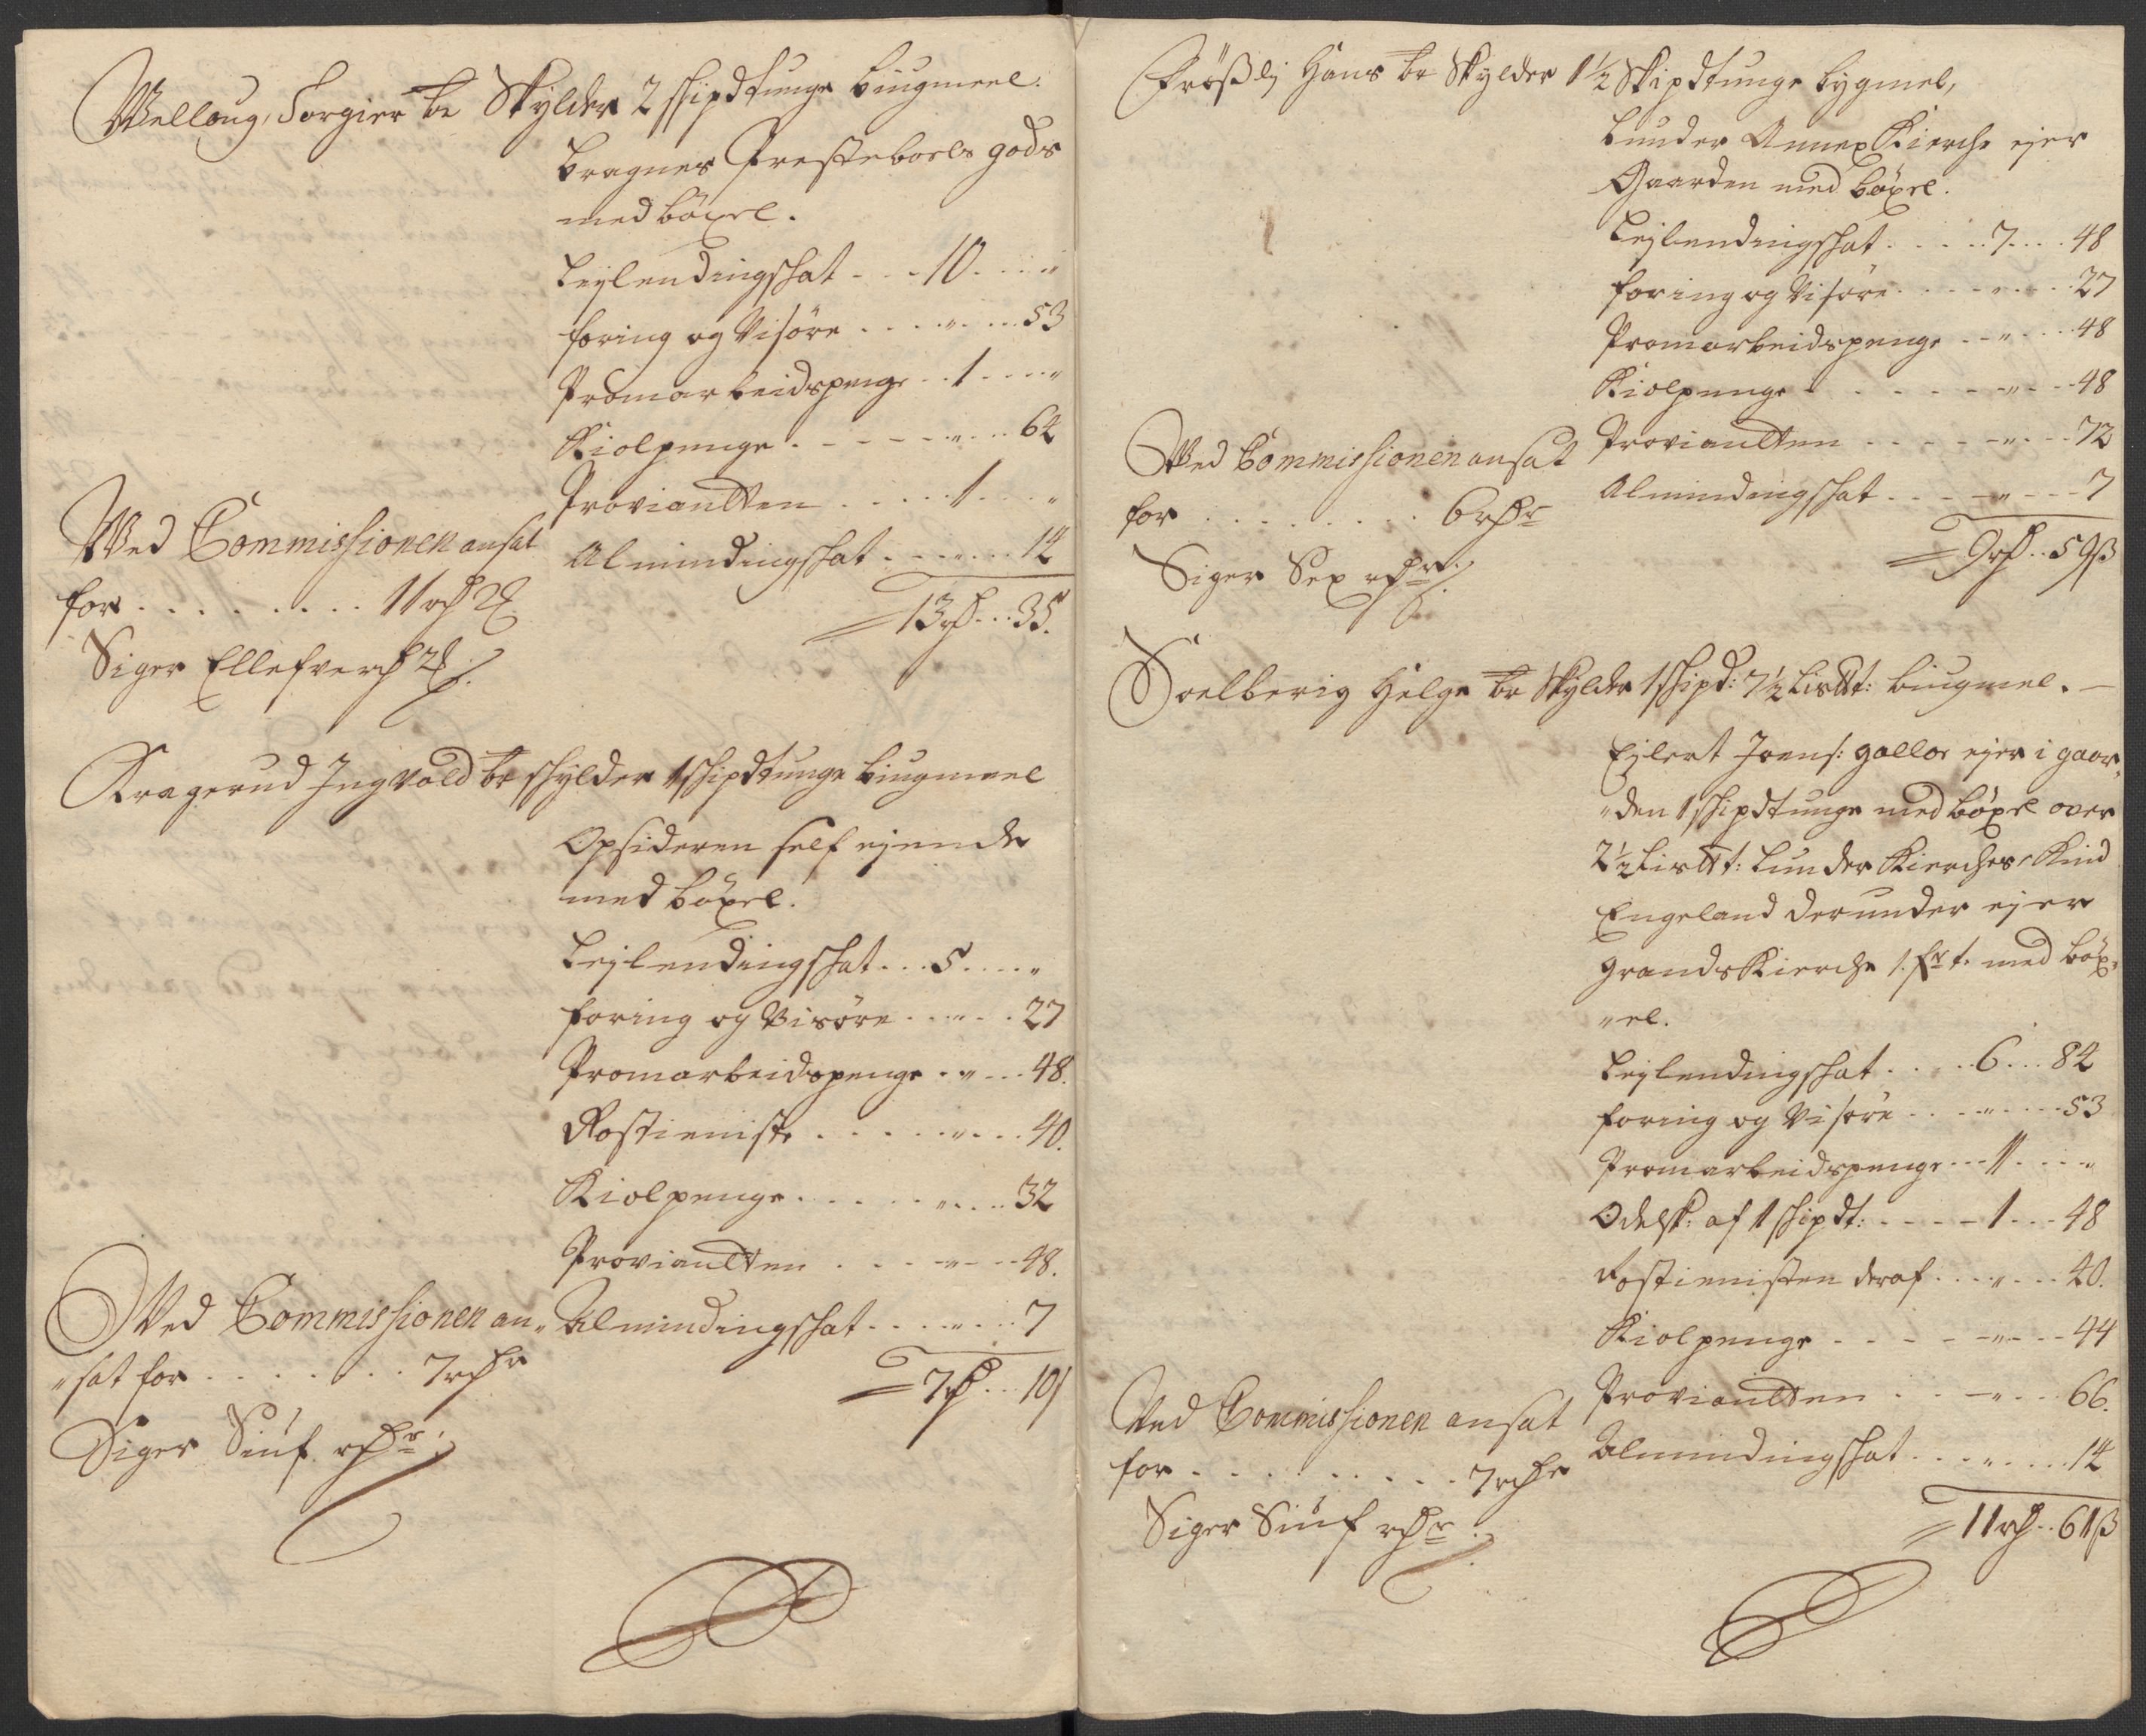 Welloug, Torgier br Skylder 2 skipdtunge biugmeel.
Bragnes Presteboels gods
med böxel.
Leylendingschat . . . 10 . . . "
foring og Visöre . . . . " . . . 53
Promarbeidspenge . . 1 . . . . "
Kiolpenge . - - - - " . . . 64
Proviandten . . . . . 1 . . . "
Almindingschat . . . . " . . . 14
13 rd . . . 35.
Ved Commissionen ansat
for . . . . . . . . . 11 rdr
Siger Ellefve rdr
Kragerud Ingvold br schylder 1 schipdtunge biugmeel
Opsideren self ejende
med böxel.
Leylendingschat . . . 5 . . . . "
foring og Visöre . . . " . . . 27
Promarbeidspenge . " . . . 48.
Rostieniste . . . . . " . . . 40.
Kiolpenge . . . . . " . . . . 32
Proviandten . . . - " - - - 48.
Almindingschat . . . . " . . . 7
7 rd . . 10 s
Ved Commissionen an"
"sat for . . . . . . . 7 rdr
Siger Siuf rdr.
Frößlj Hans br Skylder 1½ Skipdtunge bygmel,
Lunder Annex Kierche ejer
Gaarden med böxel.
Leylendingschat . . . . . 7 . . . . 48
foring og Visöre . . - - " - . . . 27
Promarbeidspenge . . - " . . . . 48
Kiolpenge . . - - - - " - - - 48
Proviandten . . . - - - " . . . . 72
Almindingschat . . . . - " - - - - 7
9 rd . . 59 ß
Ved Commissionen ansat
for . . . . . . . . . 6 rdr
Siger Sex rdr.
Soelberig Helge br Skylder 1 schipd: 7½ Lisdt: biugmel. -
Ejlert Joens: galloe ejer i gaar"
"den 1 schipdtunge med böxel over
2½ Lisdt: Lunder Kierches, Kind
Engeland derunder ejer
grands Kierche 1. fr t. med böx"
"el.
Leylendingschat . . . . . 6 . . . 84
foring og Visöre . . . . " . . . . 53
Promarbeidspenge . . . 1 . . . . "
Odelsk: af 1 schipdt: . - - - - 1 . . . 48
Rostienisten deraf . . . . " . . . . 40.
Kiolpenge . - - - - - " - - - 44
Proviandten . . . - " . . . 66.
Almindingschat . . . . " . . . . 14
11 rd . . 61 ß
Ved Commissionen ansat
for . . . . . . . . . . 7 rdr
Siger Siuf rdr.